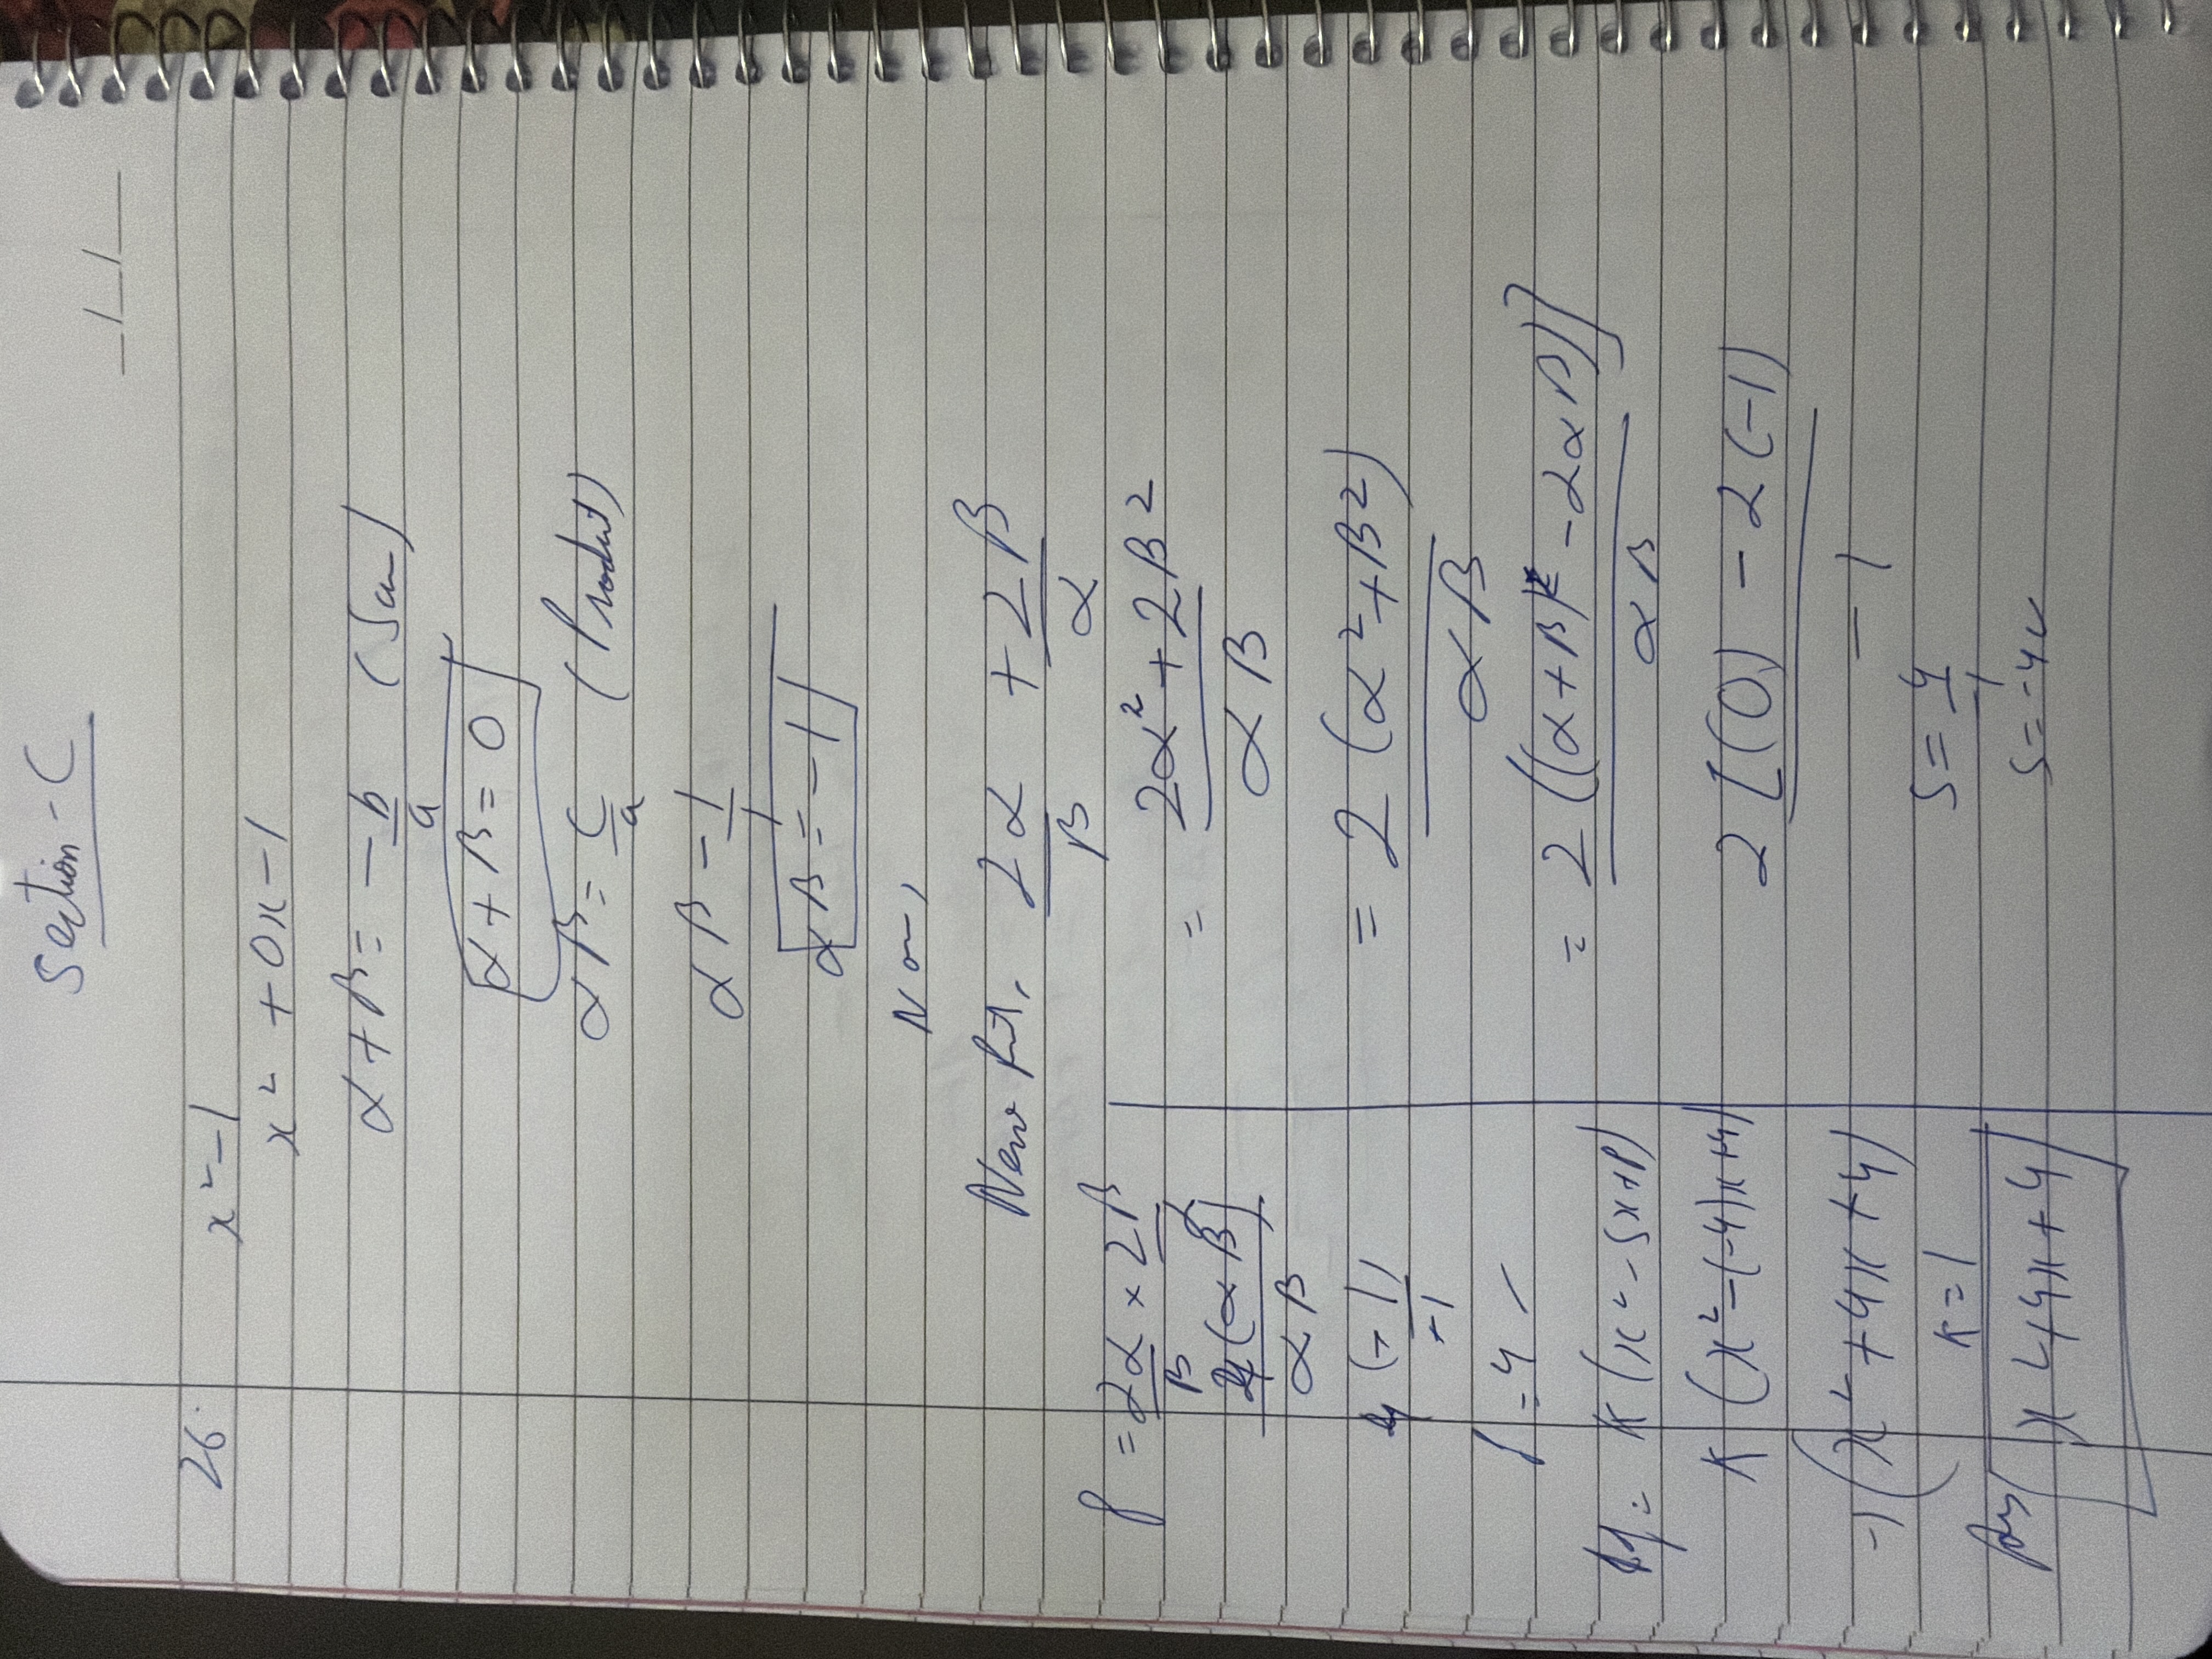 Section - C
_/_/_
26. x² - 1
x² + 0x - 1
α + β = - b/a (Sum)
α + β = 0
αβ = c/a (Product)
αβ - 1/1
αβ = - 1
Now,
New Put, 2α/β + 2β/α
= 2α² + 2β² / αβ
= 2 (α² + β²) / αβ
= 2 ((α + β)² - 2αβ)] / αβ
2 [(0) - 2 (-1) / - 1
S = 4/-1
S = - 4
P = 2α/β × 2β/
4 (αβ) / αβ
4 (-1) / -1
P = 4
= K (x² - Sx + P)
K (x² - (-4)x + 4)
(x² + 4x + 4)
K = 1
x² + 4x + 4